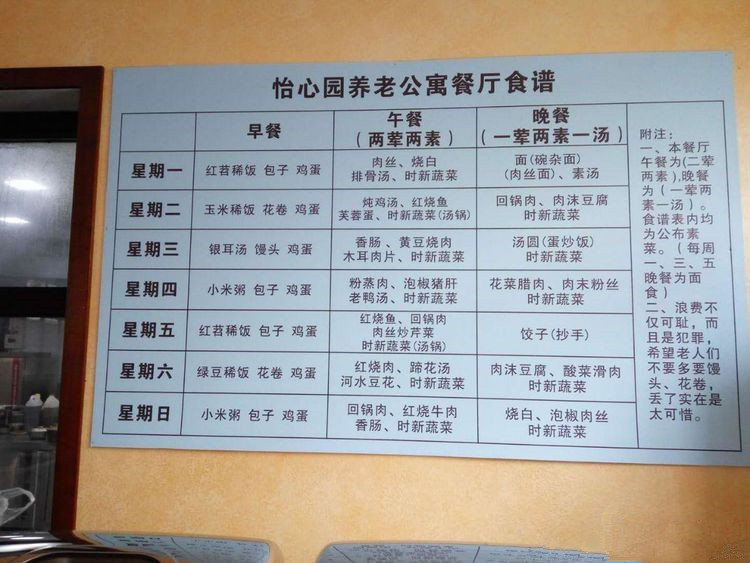 怡心园养老公寓餐厅食谱
早餐
午餐
（两荤两素）
晚餐
（一荤两素一汤）
星期一
红苕稀饭 包子 鸡蛋
肉丝、烧白
排骨汤、时新蔬菜
面(碗杂面)
(肉丝面)、素汤
星期二
玉米稀饭 花卷 鸡蛋
炖鸡汤、红烧鱼
芙蓉蛋、时新蔬菜(汤锅)
回锅肉、肉沫豆腐
时新蔬菜
星期三
银耳汤 馒头 鸡蛋
香肠、黄豆烧肉
木耳肉片、时新蔬菜
汤圆(蛋炒饭)
时新蔬菜
星期四
小米粥 包子 鸡蛋
粉蒸肉、泡椒猪肝
老鸭汤、时新蔬菜
花菜腊肉、肉末粉丝
时新蔬菜
星期五
红苕稀饭 包子 鸡蛋
红烧鱼、回锅肉
肉丝炒芹菜
时新蔬菜(汤锅)
饺子(抄手)
星期六
绿豆稀饭 花卷 鸡蛋
红烧肉、蹄花汤
河水豆花、时新蔬菜
肉沫豆腐、酸菜滑肉
时新蔬菜
星期日
小米粥 包子 鸡蛋
回锅肉、红烧牛肉
香肠、时新蔬菜
烧白、泡椒肉丝
时新蔬菜
附注：
一、本餐厅
午餐为(二荤
两素),晚餐
为（一荤两
素一汤）。
食谱表内均
为公布素
菜。（每周
一、三、五
晚餐为面
食）
二、浪费不
仅可耻，而
且是犯罪，
希望老人们
不要多要馒
头、花卷，
丢了实在是
太可惜。